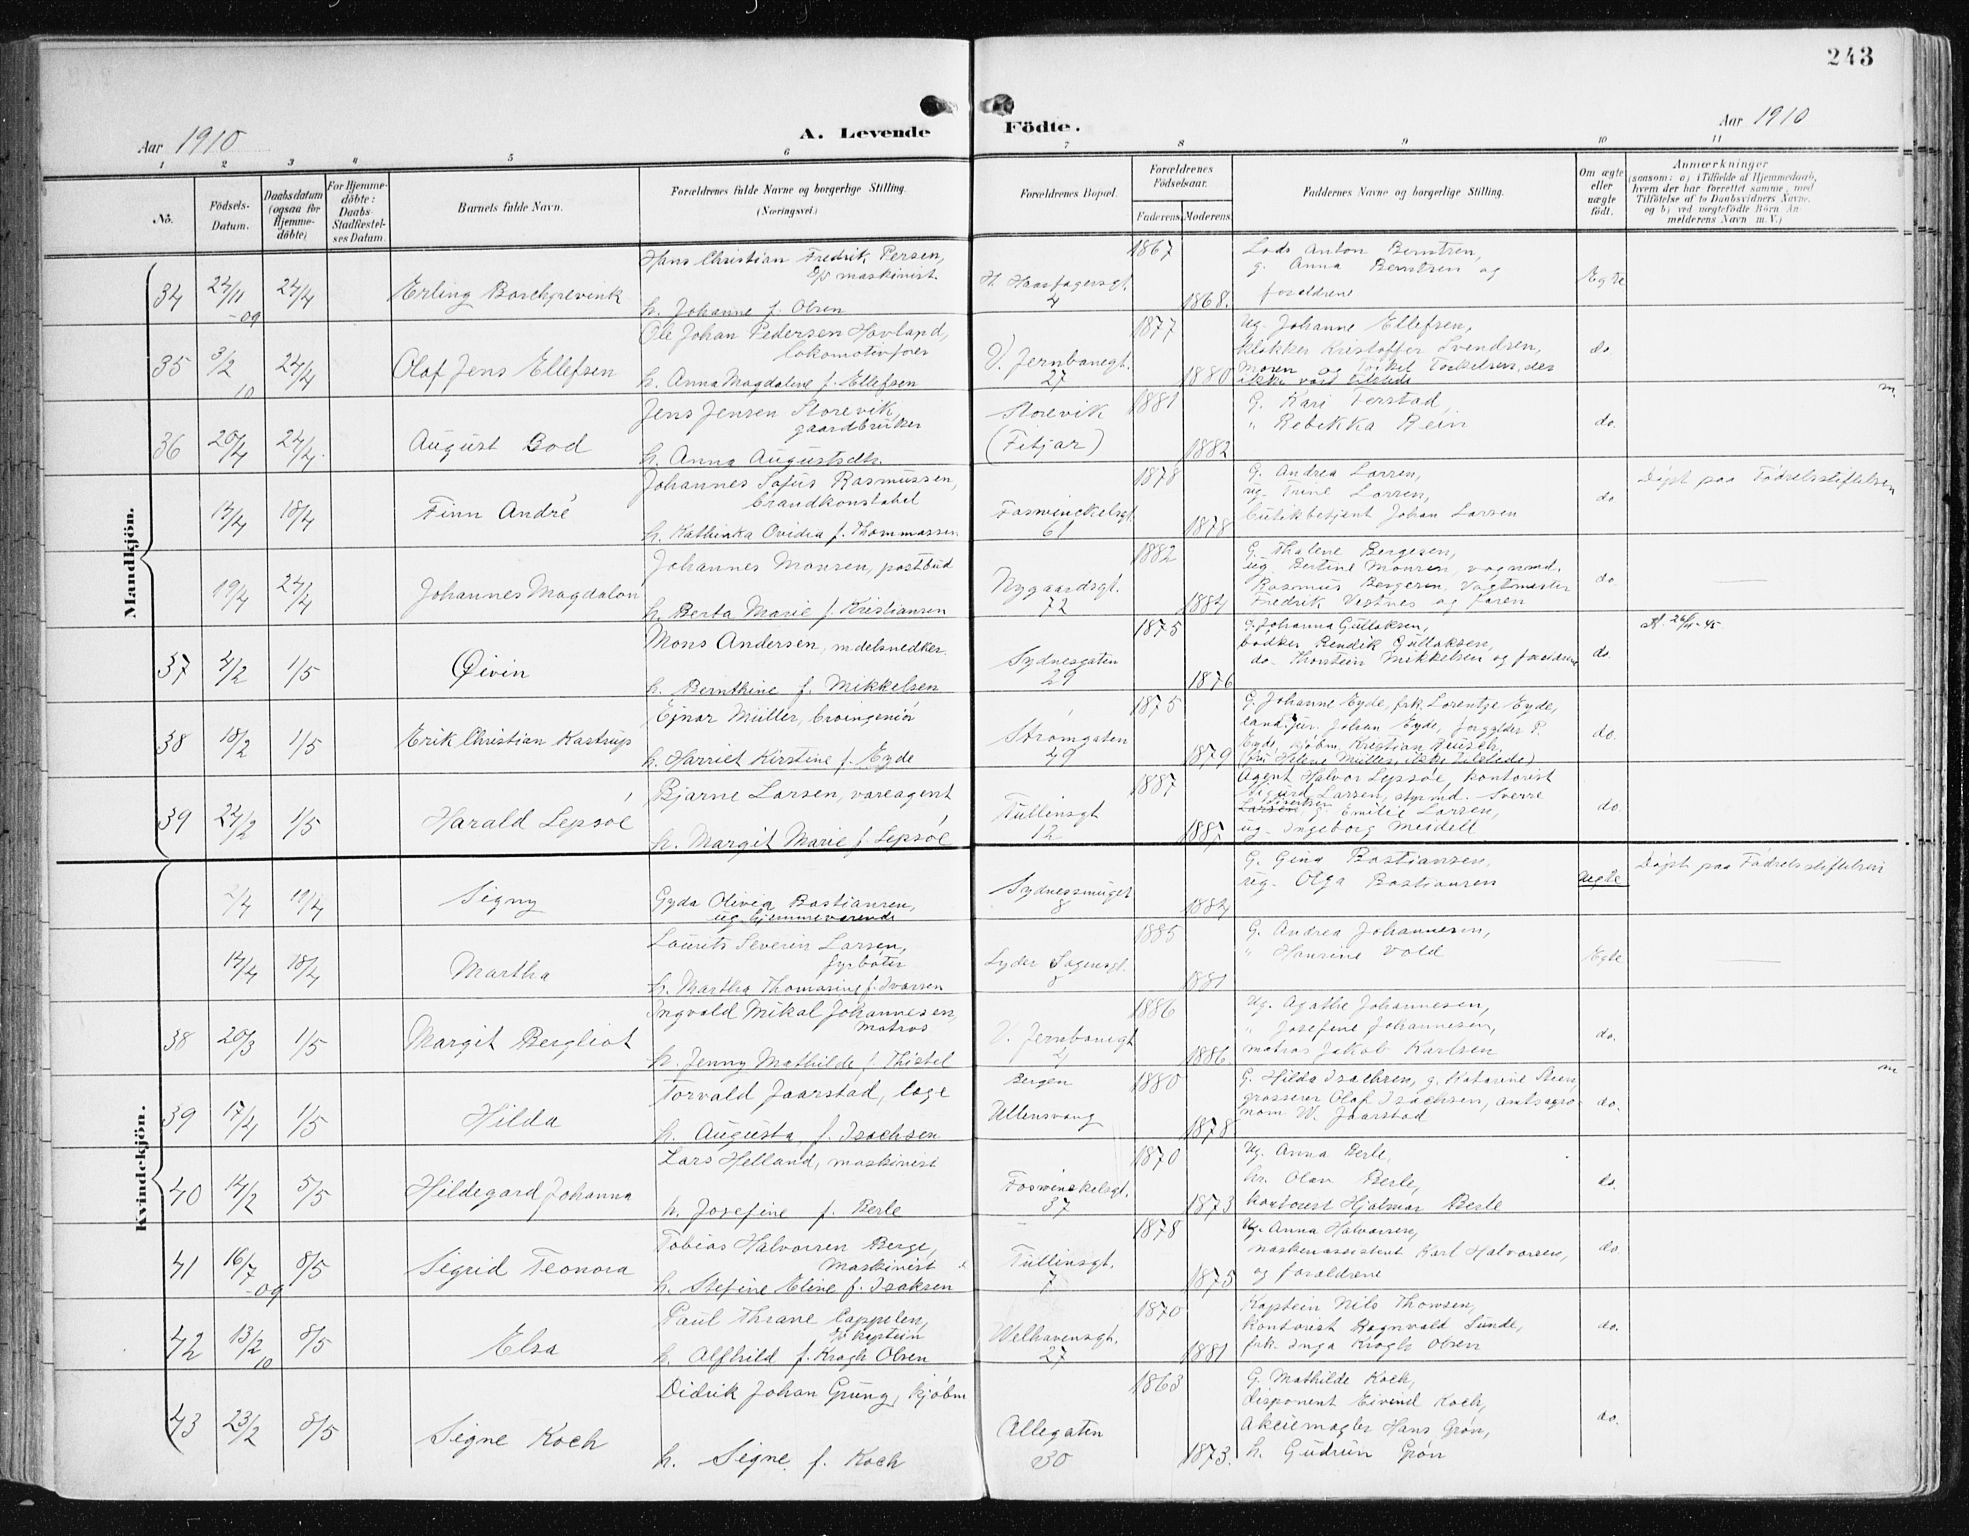 243
Aar 1910
A. Levende
Födte.
Aar 1910
1 2 3 4 5 6 7 8 9 10 11
No.
Födsels-Datum.
Daabsdatum (ogsaa for Hjemme-döbte)
For Hjemme-döbte: Daabs-Stadfæstel-ses Datum.
Barnets fulde Navn.
Forældrenes fulde Navne og borgerlige Stilling.
(Næringsvei.)
Forældrenes Bopæl.
Forældrenes Födselsaar.
Faderens Moderens
Faddernes Navne og borgerlige Stilling.
Om ægte eller uægte födt.
Anmærkninger
(saasom: a) i Tilfælde af Hjemmedaab, hvem der har forrettet samme, med Tilföielse af to Daabsvidners Navne, og b) ved uægtefödte Börn An-melderens Navn m. V.)
Mandkjön.
34 24/11 -09 24/4 Erling Borchgrevink
Hans Christian Fredrik Persen,
d/s maskinist
h. Johanne f. Olsen
H. Haarfagersgt. 4
1867
1868.
Lods Anton Berntsen,
g. Anna Berntsen og
forældrene
Egte
35 3/2 10 24/4 Olaf Jens Ellefsen
Ole Johan Pedersen Hovland,
lokomotivfører
h. Anna Magdalene f. Ellefsen
V. Jernbanegt. 27
1877
1880
Ug. Johanne Ellefsen,
klokker Kristoffer Svendsen,
Moren og Torkel Torkelsen, der
ikke var tilstede
do.
m.
36 20/4 24/4 August Bod
Jens Jensen Storevik,
gaardbruker
h. Anna Augustsdtr.
Storevik
(Fitjar)
1881
1882
G. Kari Terstad,
" Rebekka Rein
do.
14/4 18/4 Finn André
Johannes Sofus Rasmussen,
brandkonstabel
h. Kathinka Ovidia f. Thommassen
Foswinckelsgt. 61
1878
1878
G. Andrea Larsen,
ug. Trine Larsen,
butikbetjent Johan Larsen
do
Døpt paa Fødselsstiftelsen
19/4 24/4 Johannes Magdalon
Johannes Monsen, postbud
h. Berta Marie f. Kristiansen
Nygaardsgt. 72
1882
1884
G. Thalene Bergesen,
ug. Bertine Monsen, vognmd.
Rasmus Bergesen, Vagtmester
Fredrik Vestnes og faren
do
37 4/2 1/5 Øivin
Mons Andersen, mdelsnedker.
h. Bernthine f. Mikkelsen
Sydnesgaten 29
1875
1876
G. Johanna Gullaksen,
bødker Rendik Gullaksen,
do. Thorstein Mikkelsen og forældrene
do.
38 18/2 1/5 Erik Christian Kastrup
Ejnar Müller, broingeniør
h. Harriet Kirstine f. Eyde
Strømgaten 49
1875
1879
G. Johanne Eyde, frk. Lorentze Eyde,
cand. jur. Johan Eyde,
Eyde, kjøbm. Kristian Reusch,
(fru Helene Müller, ikke tilstede)
do.
39 24/2 1/5 Harald Lepsøe
Bjarne Larsen, vareagent
h. Margit Marie f. Lepsøe
Tullinsgt 12
1887
1887
Agent Halvor Lepsøe, kontorist
Sigurd Larsen, styrmd. Sverre
Sivertsen g. Emilie Larsen,
ug. Ingeborg Meidell
do.
Kvindekjön.
2/4 19/4 Signy
Gyda Olivia Bastiansen,
ug. hjemmeværende
Sydnessmuget 8
1884
G. Gina Bastiansen,
ug. Olga Bastiansen
Uegte
Døpt paa Fødselsstiftelsen
14/4 18/4 Martha
Laurits Severin Larsen,
fyrbøter
h. Martha Thomasine f. Ivarsen
Lyder Sagensgt. 8
1885
1881
G. Andrea Johannesen,
" Hansine Vold
Egte
38 20/3 1/5 Margit Bergliot
Ingvald Mikal Johannesen,
matros
h. Jenny Mathilde f. Thistel
V. Jernbanegt
1886
1886.
Ug. Agathe Johannesen,
" Josefine Johannesen,
matros Jakob Karlsen
do.
m
39 17/4 1/5 Hilda
Torvald Jaarstad, læge
h. Augusta f. Isachsen
Bergen
Ullensvang
1880
1878
G. Hilda Isachsen, g. Katarine Steen,
grosserer Olaf Isachsen, amtsagro-
nom W. Jaarstad
do.
40 14/2 5/5 Hildegard Johanna
Lars Helland, maskinist
h. Josefine f. Berle
Foswinckelsgt. 37
1870
1873
Ug. Anna Berle,
hr. Olav Berle,
kontorist Hjalmar Berle
do.
41 16/7 -09 8/5 Sigrid Teonora
Tobias Halvorsen Berge,
Maskinist
h. Stefine Eline f. Isaksen
Tullinsgt. 7
1878
1875
Ug. Anna Halvorsen,
maskinassistent Karl Halvorsen,
og forældrene
do
42 13/2 10 8/5 Elsa
Paul Thrane Cappelen,
d/s kaptein
h. Alfhild f. Krogh Olsen
Welhavensgt. 27
1870
1881
Kaptein Nils Thomsen,
kontorist Ragnvald Sunde,
frk. Inga Krogh Olsen
do.
43 23/2 8/5 Signe Koch
Didrik Johan Grung, kjøbm
h. Signe f. Koch
Allegaten 30
1863
1873.
G. Mathilde Koch,
disponent Eivind Koch,
Aktiemægler Hans Grøn,
h. Gudrun Grøn
do.